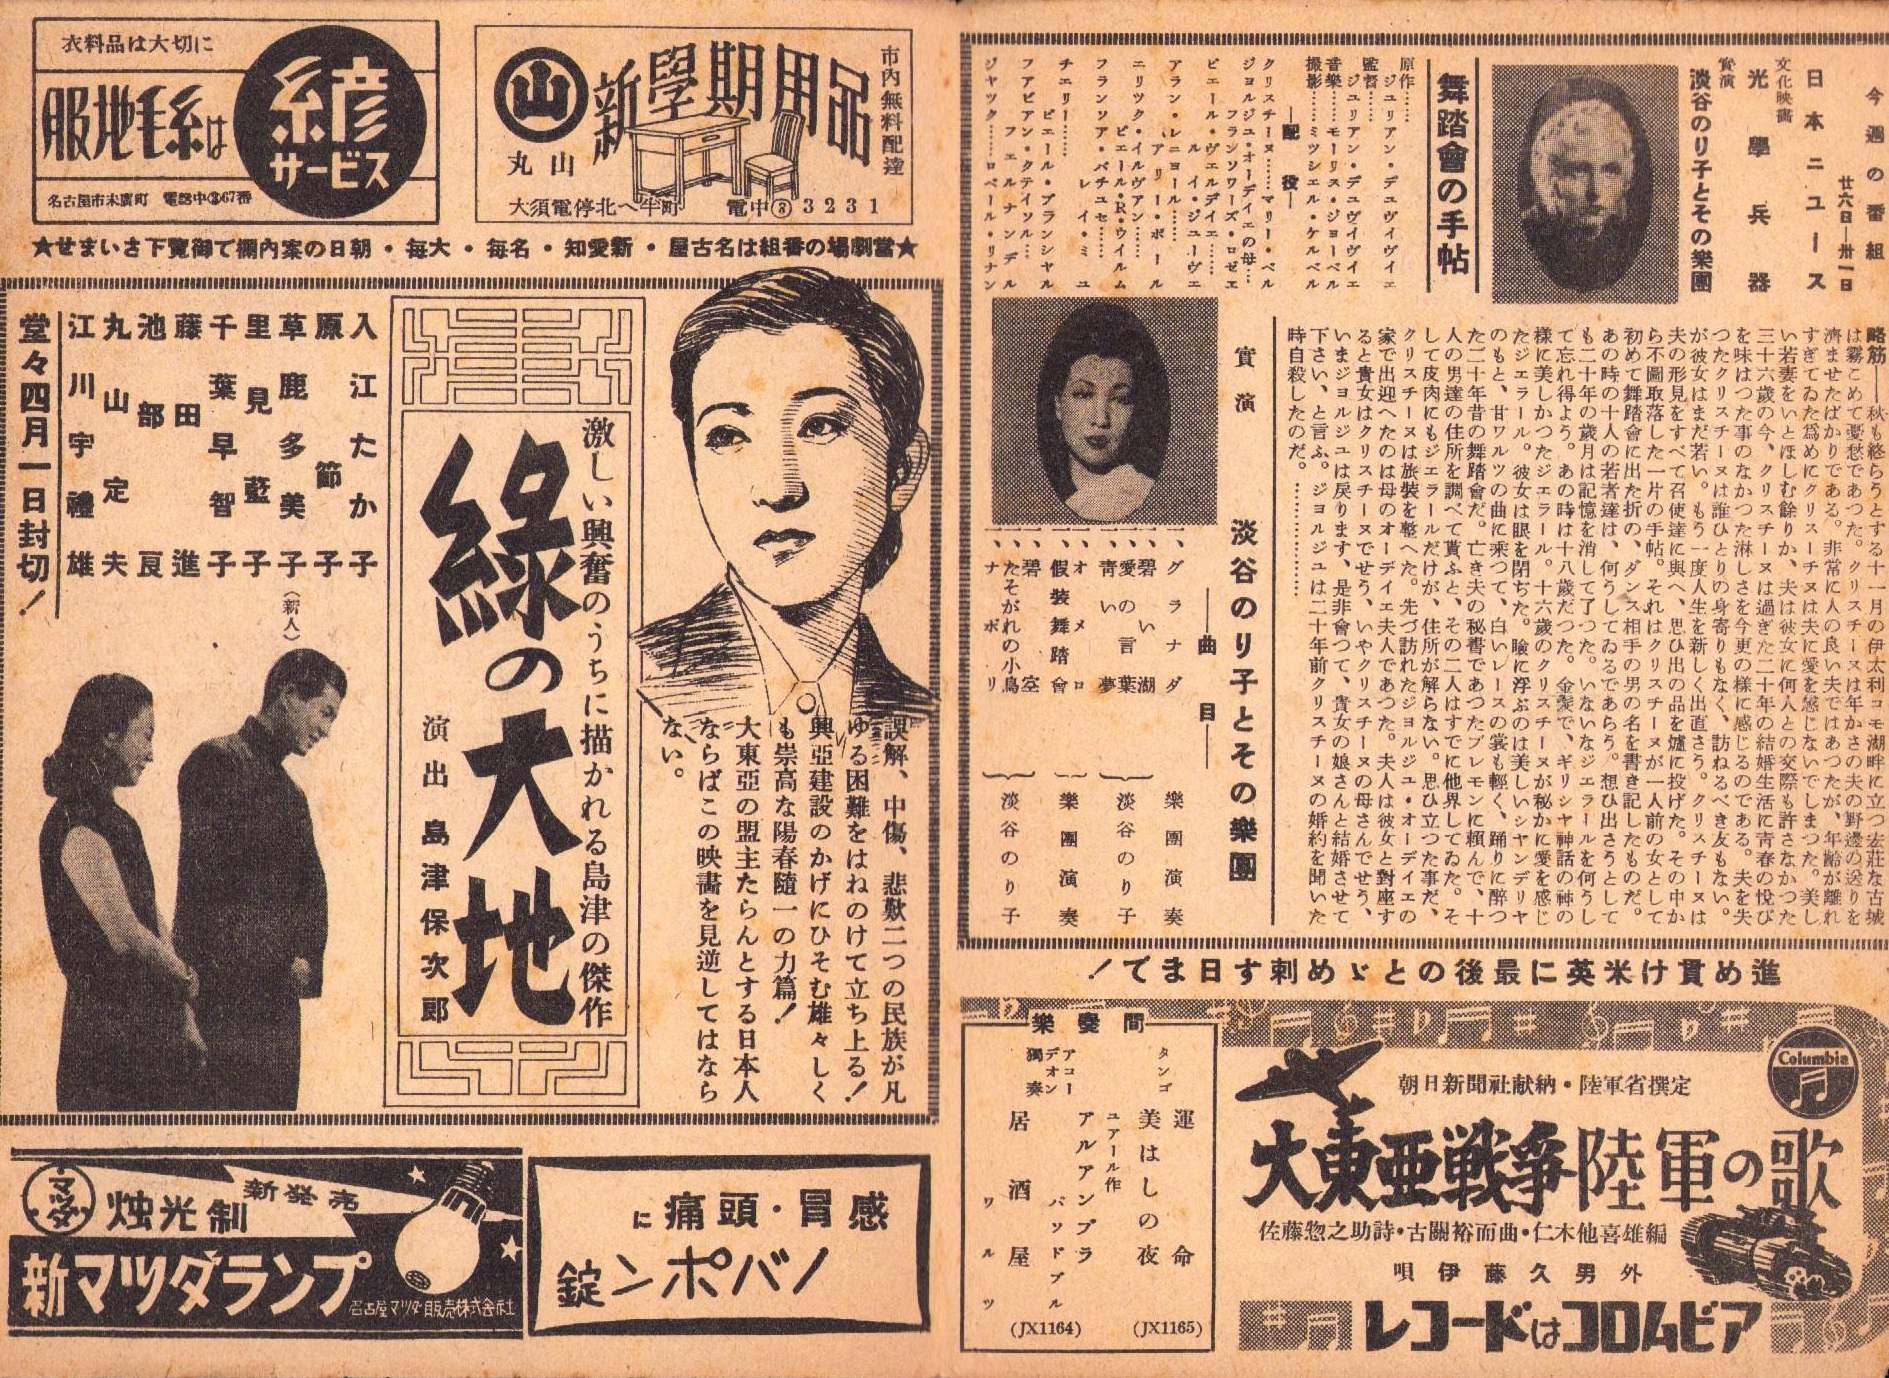 今週の番組
廿六日—卅一日
日本ニュース
文化映畵
光學兵器
實演
淡谷のり子とその樂團
舞踏會の手帖
原作……
ジュリアン・デュヴィヴィエ
監督……
ジュリアン・デュヴィヴィエ
音樂……モーリス・ジョーベル
撮影……ミツシエル・ケルベル
—配役—
クリスチーヌ……マリー・ベル
ジョルジュ・オーディエの母…
フランソワーズ・ロゼエ
ピエール・ヴェルディエ……
ルイ・ジューヴェ
アラン・レニョール……
アリー・ボール
エリツク・イルヴアン……
ピエール・R・ウイルム
フランソア・パチュセ……
レイ・ミュ
チエリー……
ピエール・ブランシヤル
フアビアン・クテイソル…
フェルナンデル
ジヤツク……ロベール・リナン
略筋——秋も終らうとする十一月の伊太利コモ湖畔に立つ宏莊な古城
は霧こめて憂愁であつた。クリスチーヌは年かさの夫の野邊の送りを
濟ませたばかりである。非常に人の良い夫ではあつたが、年齡が離れ
すぎてゐた爲めにクリスチーヌは夫に愛を感じないでしまつた。美し
い若妻をいとほしむ餘りか、夫は彼女に何人との交際も許さなかつた
三十六歳の今、クリスチーヌは過ぎた二十年の結婚生活に靑春の悅び
を味はつた事のなかつた淋しさを今更の樣に感じるのである。夫を失
つたクリスチーヌは誰ひとりの身寄りもなく、訪ねるべき友もない。
が彼女はまだ若い。もう一度人生を新しく出直さう。クリスチーヌは
夫の形見をすべて召使達に與へ、思ひ出の品を爐に投げた。その中か
ら不圖取落した一片の手帖。それはクリスチーヌが一人前の女として
初めて舞踏會に出た折の、ダンス相手の男の名を書き記したものだ。
あの時の十人の若者達は、何うしてゐるであらう。想ひ出さうとして
も二十年の歳月は記憶を消して了つた。いないなジェラールを何うし
て忘れ得よう。あの時は十八歳だつた。金髪で、ギリシヤ神話の神の
樣に美しかつたジェラール。十六歳のクリスチーヌが秘かに愛を感じ
たジエラール。彼女は眼を閉ぢた。瞼に浮ぶのは美しいシヤンデリヤ
のもと、甘ワルツの曲に乘つて、白いレースの裳も輕く、踊りに醉つ
た二十年昔の舞踏會だ。亡き夫の秘書であつたブレモンに賴んで、十
人の男達の住所を調べて貰ふと、その二人はすでに他界してゐた。そ
して皮肉にもジェラールだけが、住所が解らない。思ひ立つた事だ、
クリスチーヌは旅裝を整へた。先づ訪れたジョルジュ・オーディエの
家で出迎へたのは母のオーディエ夫人であつた。夫人は彼女と對座す
ると貴女はクリスチーヌでせう、いやクリスチーヌの母さんでせう、
いまジョルジュは戾ります、是非會つて、貴女の娘さんと結婚させて
下さい、と言ふ。ジョルジュは二十年前クリスチーヌの婚約を聞いた
時自殺したのだ。…………
實演
淡谷のり子とその樂團
——曲目——
一、グラナダ
一、碧い湖
樂團演奏
一、愛の言葉
一、靑い夢
淡谷のり子
一、オメロ
一、假裝舞踏會
樂團演奏
一、碧空
一、たそがれの小鳥
一、ナポリ
淡谷のり子
進め貫け米英に最後のとゞめ刺す日まで！
Columbia
朝日新聞社献納・陸軍省撰定
大東亜戦争陸軍の歌
佐藤惣之助詩・古關裕而曲・仁木他喜雄編
唄 伊藤久男外
レコードはコロムビア
間憂樂
タンゴ
運命
美はしの夜
(JX1165)
アコーデオン獨奏
ユアール作
アルアンブラ
パツドブル
居酒屋
ワルツ
(JX1164)
衣料品は大切に
服地毛糸は
糸彦
サービス
名古屋市末廣町 電話中③67番
丸山
新學期用品
市内無料配達
大須電停北へ半町 電中③3231
★當劇場の番組は名古屋・新愛知・名每・大每・朝日の案内欄で御覽下さいませ★
激しい興奮のうちに描かれる島津の傑作
綠の大地
演出 島津保次郎
誤解、中傷、悲歎二つの民族が凡
ゆる困難をはねのけて立ち上る！
興亞建設のかげにひそむ雄々しく
も崇高な陽春隨一の力篇！
大東亞の盟主たらんとする日本人
ならばこの映畵を見逆してはなら
ない。
入江たか子
原節子
草鹿多美子
(新人)
里見藍子
千葉早智子
藤田進
池部良
丸山定夫
江川宇禮雄
堂々四月一日封切！
マツダ
燭光制
新発売
新マツダランプ
名古屋マツダ販売株式会社
感冒・頭痛に
ノバポン錠